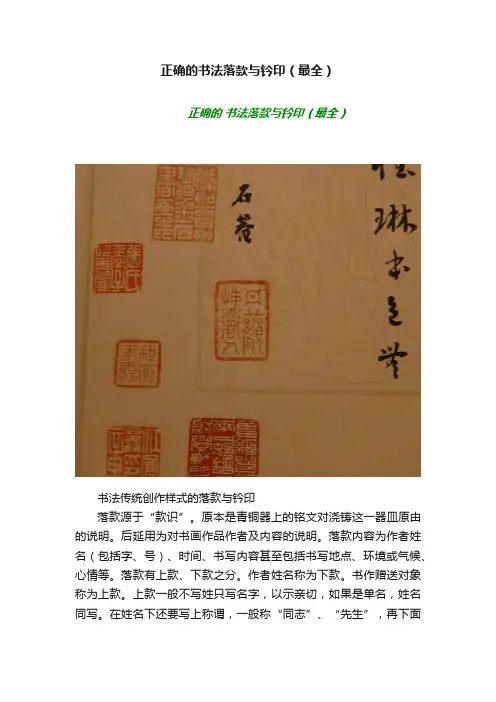 正确的书法落款与钤印（最全）
正确的 书法落款与钤印（最全）
石菴
琳本色
书法传统创作样式的落款与钤印
落款源于“款识”。原本是青铜器上的铭文对浇铸这一器皿原由
的说明。后延用为对书画作品作者及内容的说明。落款内容为作者姓
名（包括字、号）、时间、书写内容甚至包括书写地点、环境或气候、
心情等。落款有上款、下款之分。作者姓名称为下款。书作赠送对象
称为上款。上款一般不写姓只写名字，以示亲切，如果是单名，姓名
同写。在姓名下还要写上称谓，一般称“同志”、“先生”，再下面